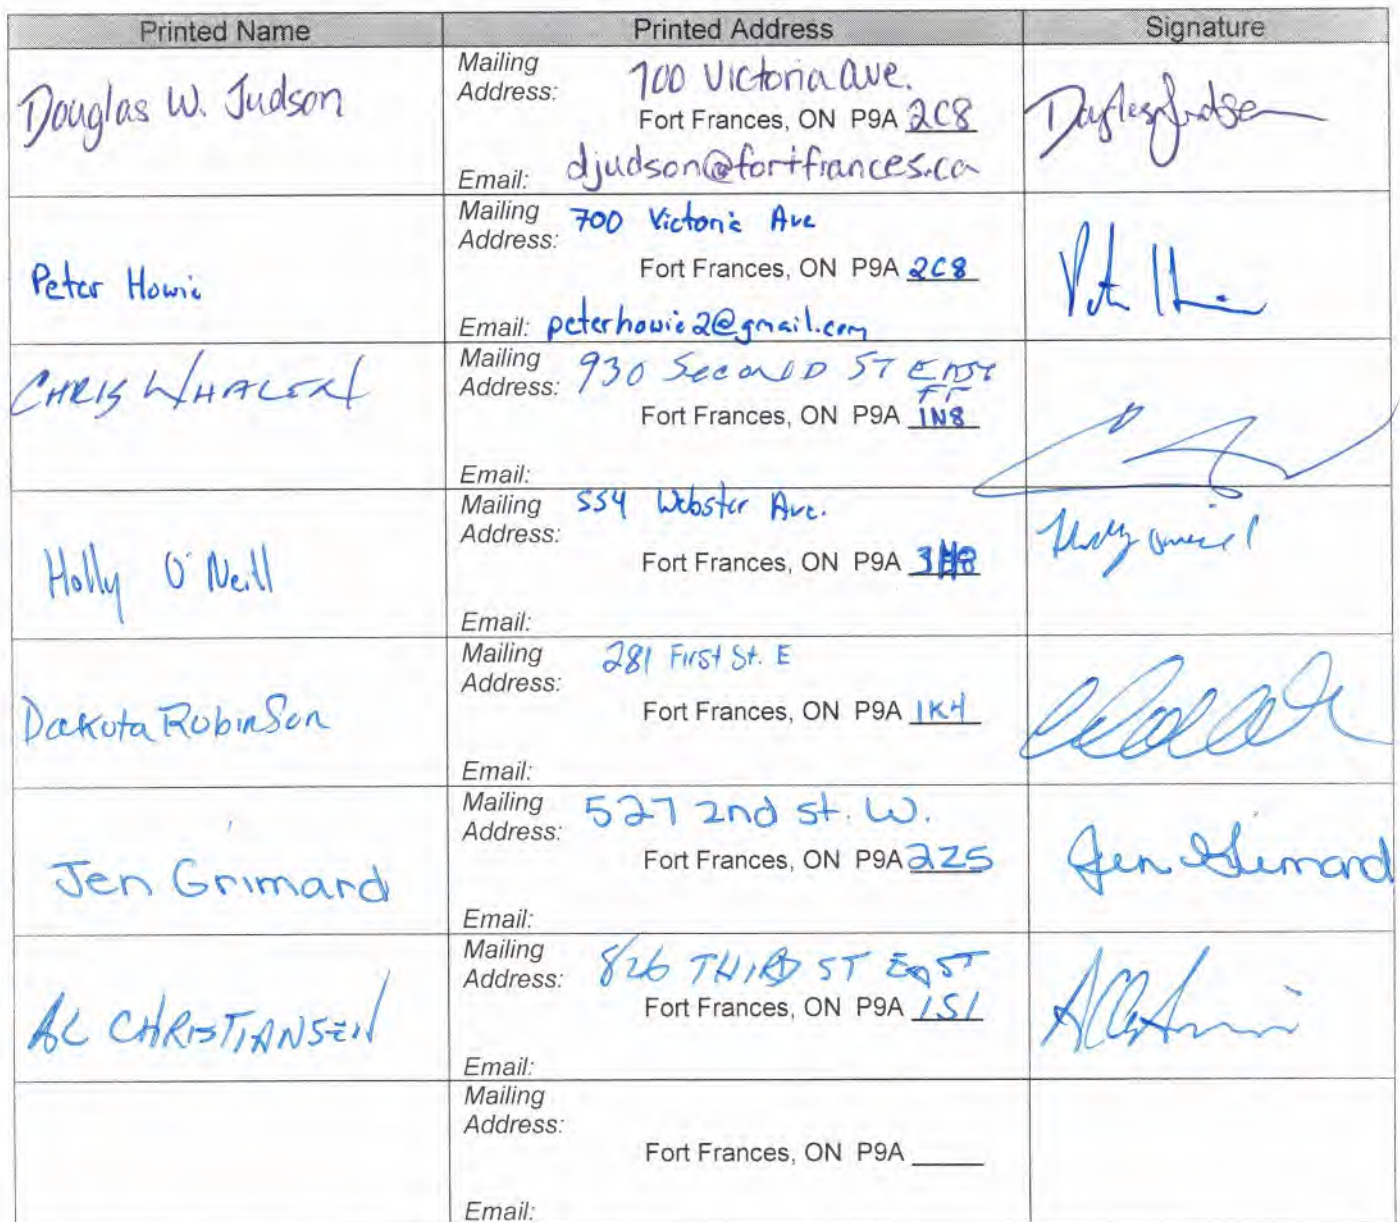 Printed Name Printed Address Signature
Douglas W. Judson
Mailing Address: 700 Victoria Ave.
Fort Frances, ON P9A 2C8
Email: djudson@fortfrances.ca
Peter Howie
Mailing Address: 700 Victoria Ave
Fort Frances, ON P9A 2C8
Email: peterhowie2@gmail.com
CHRIS WHALEN
Mailing Address: 930 Second ST EAST
FF
Fort Frances, ON P9A 1N8
Email:
Holly O'Neill
Mailing Address: 554 Webster Ave.
Fort Frances, ON P9A
Email:
Dakota Robinson
Mailing Address: 281 First St. E
Fort Frances, ON P9A 1K4
Email:
Jen Grimard
Mailing Address: 527 2nd st. W.
Fort Frances, ON P9A 2Z5
Jen Grimard
Email:
AL CHRISTIANSEN
Mailing Address: 826 THIRD ST EAST
Fort Frances, ON P9A 1S1
Email:
Mailing Address:
Fort Frances, ON P9A
Email: